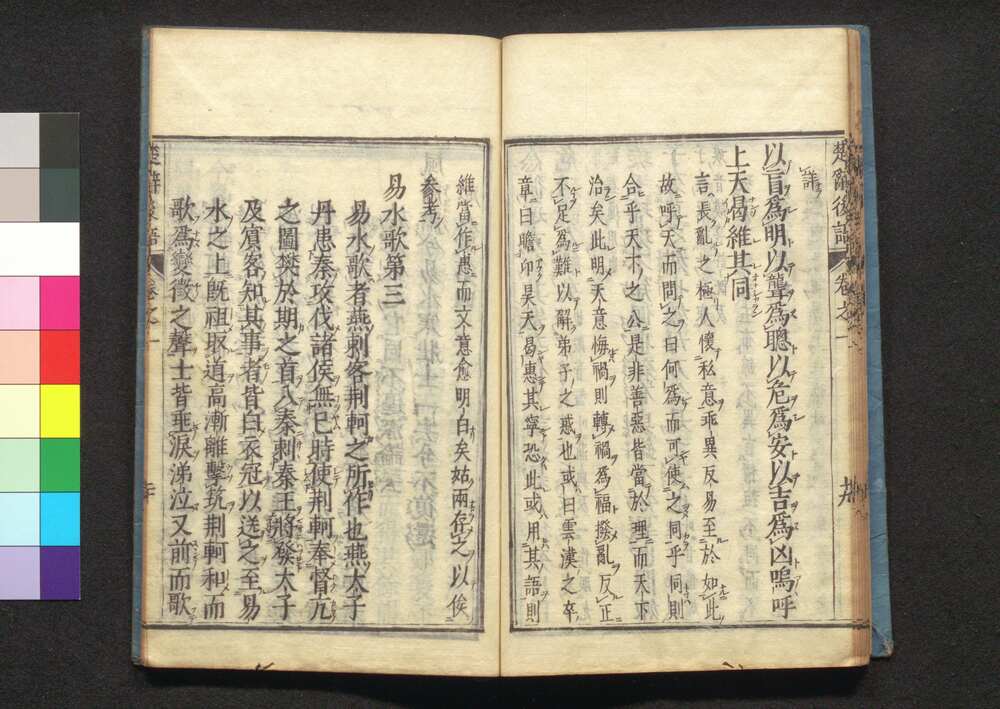 楚辭後語 卷之一 十九
詳
以盲爲明以聾爲聰以危爲安以吉爲凶嗚呼
上天曷維其同
言長亂之極人懷私意乖異反易至於如此
故呼天而問之曰何爲而可使之同乎同則
合乎天下之公是非善惡皆當於理而天下
治矣此明天意悔禍則轉禍爲福撥亂反正
不足爲難以解弟子之惑也或曰雲漢之卒
章曰瞻卬昊天曷惠其寧恐此或用其語則
維當作惠而文意愈明白矣姑兩存之以俟
參考
易水歌第三
易水歌者燕刺客荆軻之所作也燕太子
丹患秦攻伐諸侯無已時使荆軻奉督亢
之圖樊於期之首入秦刺秦王將發太子
及賓客知其事者皆白衣冠以送之至易
水之上既祖取道高漸離擊筑荆軻和而
歌爲變徵之聲士皆垂淚涕泣又前而歌
楚辭後語 卷之一 二十